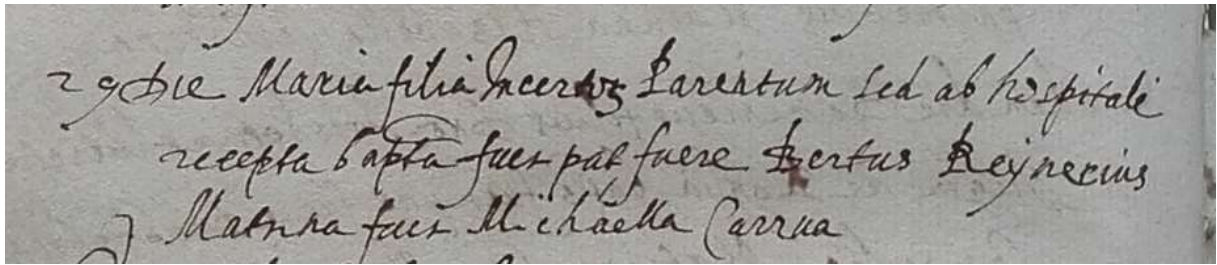 29 Die Maria filia Incertoꝝ Parentum sed ab hospitali
recepta bapta fuit pat fuere Bertus Reynerius
Matrina fuit Michaella Carrua